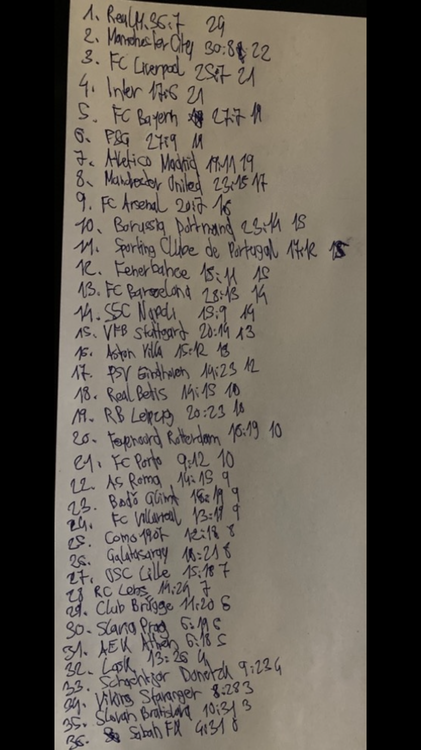 1. Real M. 36:7 29
2. Manchester City 30:8 22
3. FC Liverpool 25:7 21
4. Inter 17:6 21
5. FC Bayern 27:7 19
6. PSG 27:9 19
7. Atletico Madrid 17:11 19
8. Manchester United 23:15 17
9. FC Arsenal 20:7 16
10. Borussia Dortmund 23:14 15
11. Sporting Clube de Portugal 17:12 15
12. Fenerbahce 15:11 15
13. FC Barcelona 28:13 14
14. SSC Napoli 15:9 14
15. VFB Stuttgart 20:14 13
16. Aston Villa 15:12 13
17. PSV Eindhoven 14:23 12
18. Real Betis 14:15 10
19. RB Leipzig 20:23 10
20. Feyenoord Rotterdam 16:19 10
21. FC Porto 9:12 10
22. AS Roma 14:15 9
23. Bodö Glimt 16:19 9
24. FC Villarreal 13:19 9
25. Como 1907 12:18 8
26. Galatasaray 18:21 8
27. OSC Lille 15:18 7
28 RC Lens 14:24 7
29. Club Brügge 11:20 6
30. Slavia Prag 6:19 6
31. AEK Athen 6:18 5
32. Lask 13:26 4
33. Schachtjor Donezk 9:23 4
34. Viking Stavanger 8:28 3
35. Slovan Bratislava 10:31 3
36. Sabah FK 4:31 0